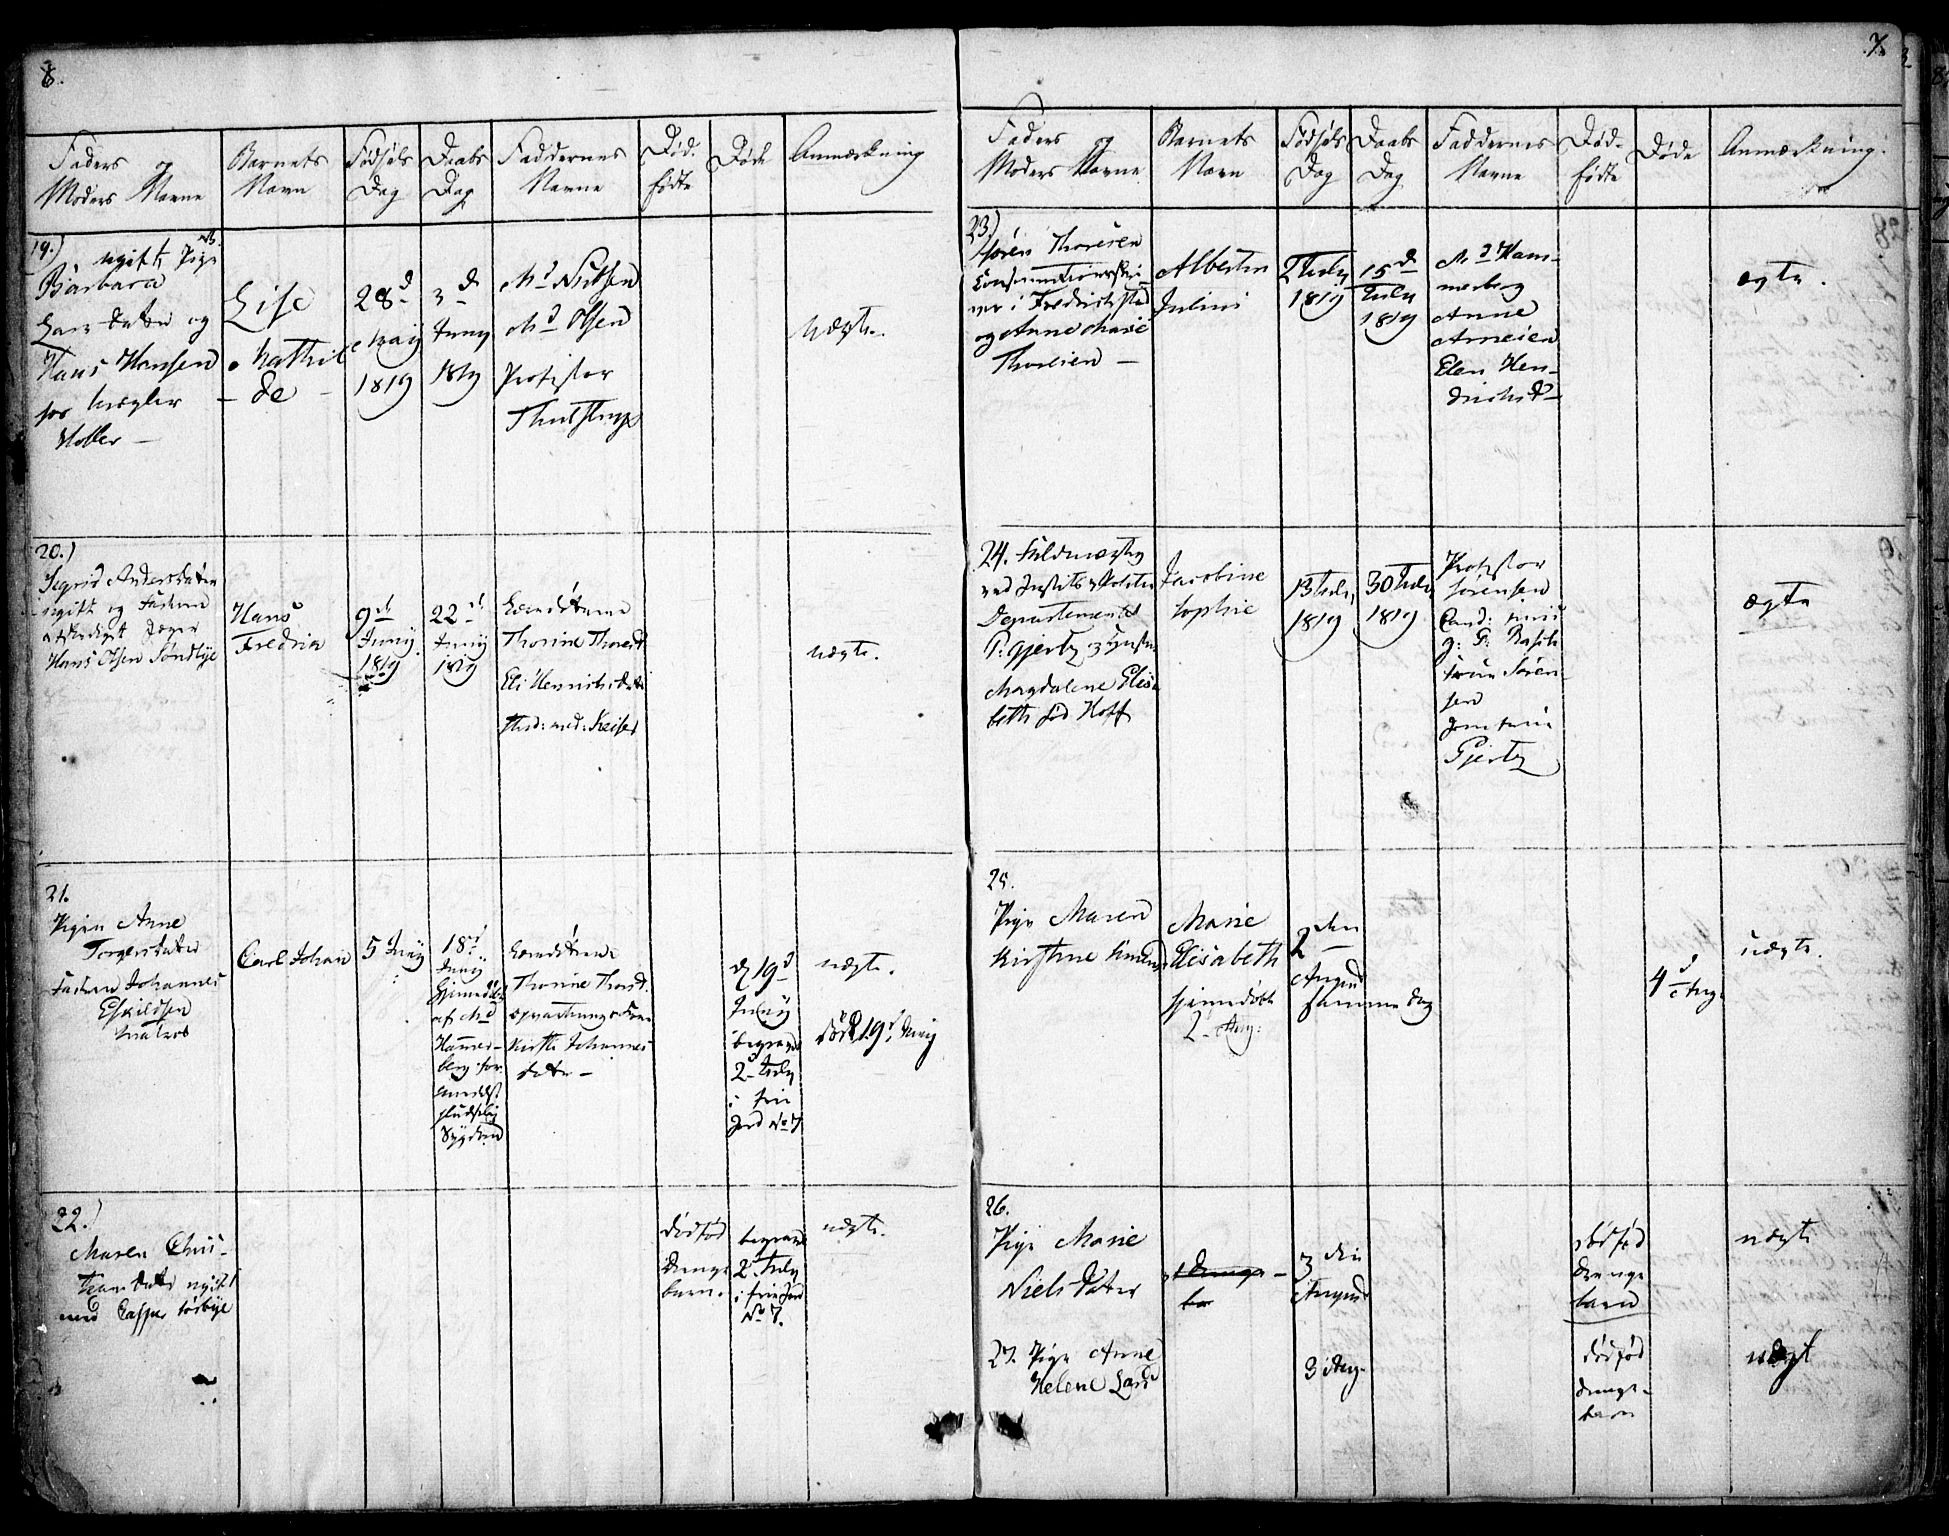 8.
Faders og
Moders Navne
Barnets
Navn
Fødsels
Dag
Daabs
Dag
Faddernes
Navne
Død-
fødte
Døde
Anmærkning
19.)
ugift Pige
Barbara
Lars datter og
Hans Hansen
hos Mægler
Møller
Lise
Mathil
de
28d
May
1819
3d
Juny
1819
Md Nielsen
Md Olsen
Professor
Thulstrup
uægte.
20.)
Sigrid Andersdatter
ugift og Faderen
afskediget Jæger
Hans Olsen Søndbye
Hans
Fredrik
9d
Juny
1819
22d
Juny
1819
Thorine Thorsd.
Eli Henrichsdatter
Stud: med: Keiser
uægte.
21.
Pigen Anne
Torgersdatter
Faderen Johannes
Eskildsen
Matros
Carl Johan
5 Juny
18d
Juny
hjemmedøbt
af Md
Hammer-
berg for-
medelst
pludselig
Sygdom
Thorine Thorsd.
Opvartnings Kone
Kirsti Johannes
datter
d 19d
Juny
begravet
2 July
i frie
Jord No 7
uægte.
død 19d Juny
22.)
Maren Chris-
tians datter ugift
med Casper Sørbye
dødfød
Drenge
barn.
begravet
2 July
i frie Jord
No 7.
uægte.
7.
Faders og
Moders Navne
Barnets
Navn
Fødsels
Dag
Daabs
Dag
Faddernes
Navne
Død-
fødte
Døde
Anmærkning.
23.)
Søren Thoresen
Consumtionsskri-
ver i Fredrichstad
og Anne Marie
Thoresen
Albertin
Julini
2 July
1819
15de
July
1819
Md Ham-
merberg
Anne
Arnesen
Elen Hen-
drichsd.
ægte.
24. Fuldmægtig
ved Justits og Politie
Departementet
P: Gjertz og Hustru
Magdalene Elisa
beth fød Hoff
Jacobine
Sophie
13 July
1819
30 July
1819
Professor
Sørensen
Cand: juris
g: P: Rasch
Frue Søren-
sen
Jomfrue
Gjertz
ægte
25.
Pige Maren
Kirstine Knuds
Marie
Elisabeth
hjemmedøbt
2 Aug:
2den
August
samme dag
4d Aug.
uægte.
26.
Pige Marie
Niels datter
Drenge
bar
3 die
August
dødfød
Drenge
barn
uægte
27. Pige Anne
Helene Larsd
3 Aug.
dødfød
drenge-
barn
uægt